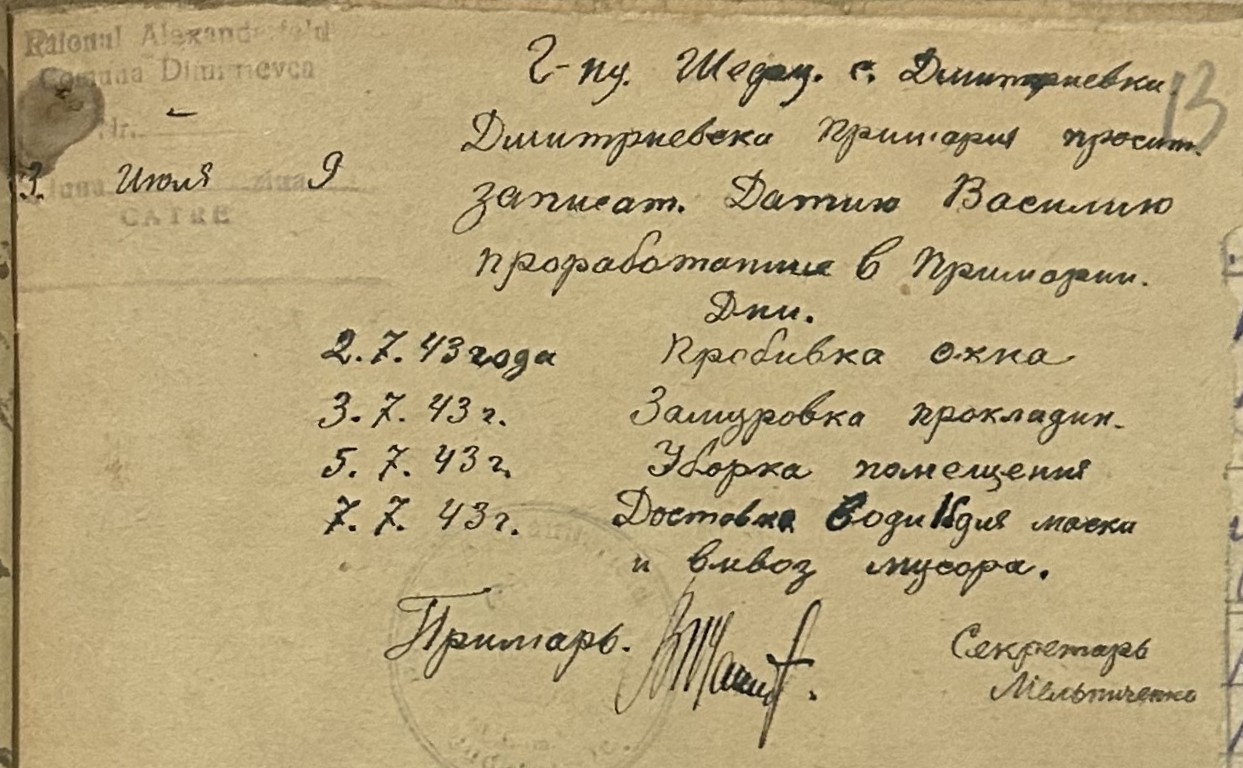 Raionul Alexanderfeld
Comuna Dimitrievca
Nr.
Июля 9
CATRE
13
Г-ну. с. Дмитриевки
Дмитриевска Примария просит.
записат. Датию Василию
проработаные в Примарии.
Дни.
2. 7. 43 года Пробивка окна
3. 7. 43 г. Замуровка прокладин.
5. 7. 43 г. Уборка помещения
7. 7. 43 г. Доставка води для
и вивоз мусора.
Примарь.
Секретарь
Мельниченко